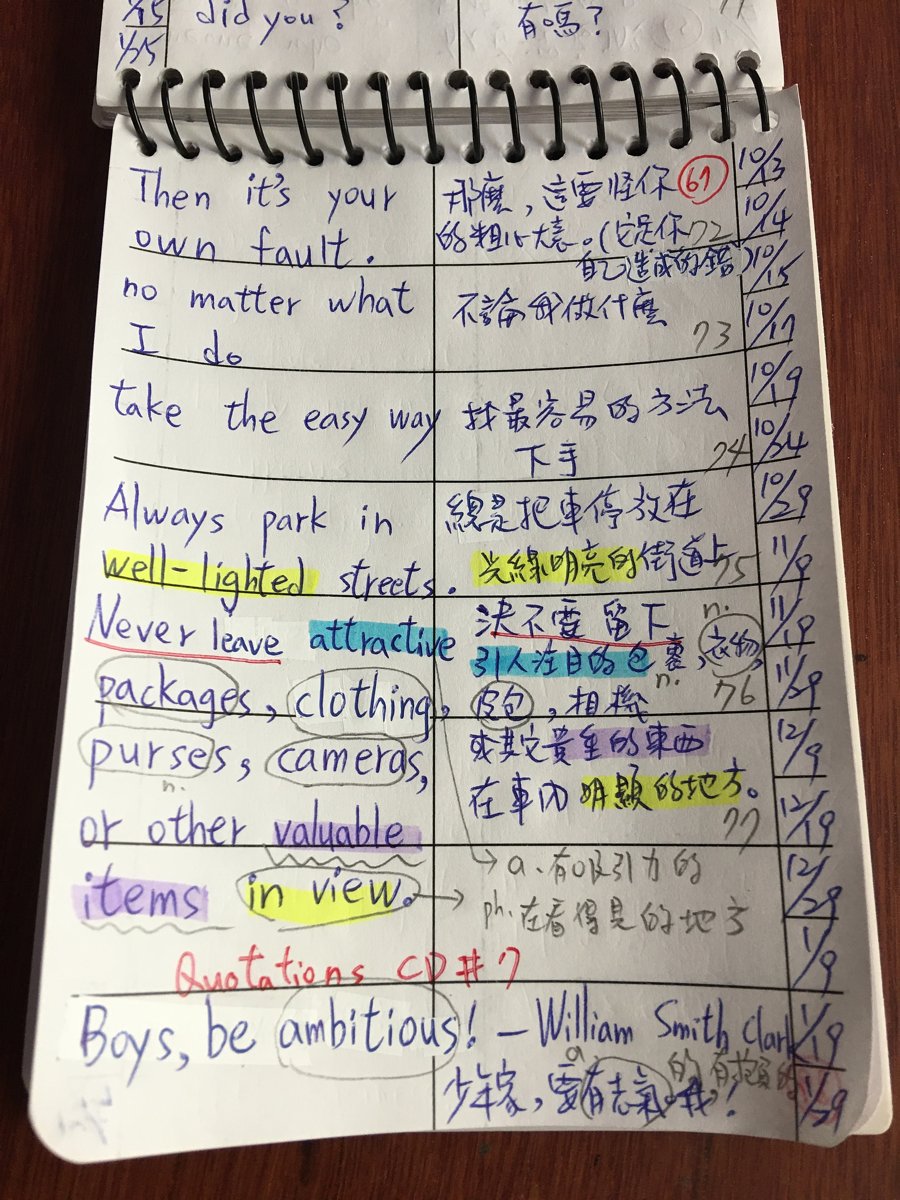 1/15
did you?
有嗎?
1/25
Then it's your
own fault.
那麼，這要怪你 61
的粗心大意。(它是你 72
自己造成的錯)
no matter what
I do
不論我做什麼
73
take the easy way
找最容易的方法
下手
74
Always park in
well-lighted streets.
總是把車停放在
光線明亮的街道上 75
Never leave attractive
packages, clothing,
purses, cameras,
n.
or other valuable
items in view.
決不要留下 n.
引人注目的包裹,衣物,
n. 76
皮包,相機
或其它貴重的東西
在車內明顯的地方。
77
→ a.有吸引力的
→ ph.在看得見的地方
Quotations CD#7
Boys, be ambitious! — William Smith Clark
a. 的,有抱負的
少年家,要有志氣哦!
10/13
10/14
10/15
10/17
10/19
10/24
10/29
11/9
11/19
11/29
12/9
12/19
12/29
1/9
1/19
1/29